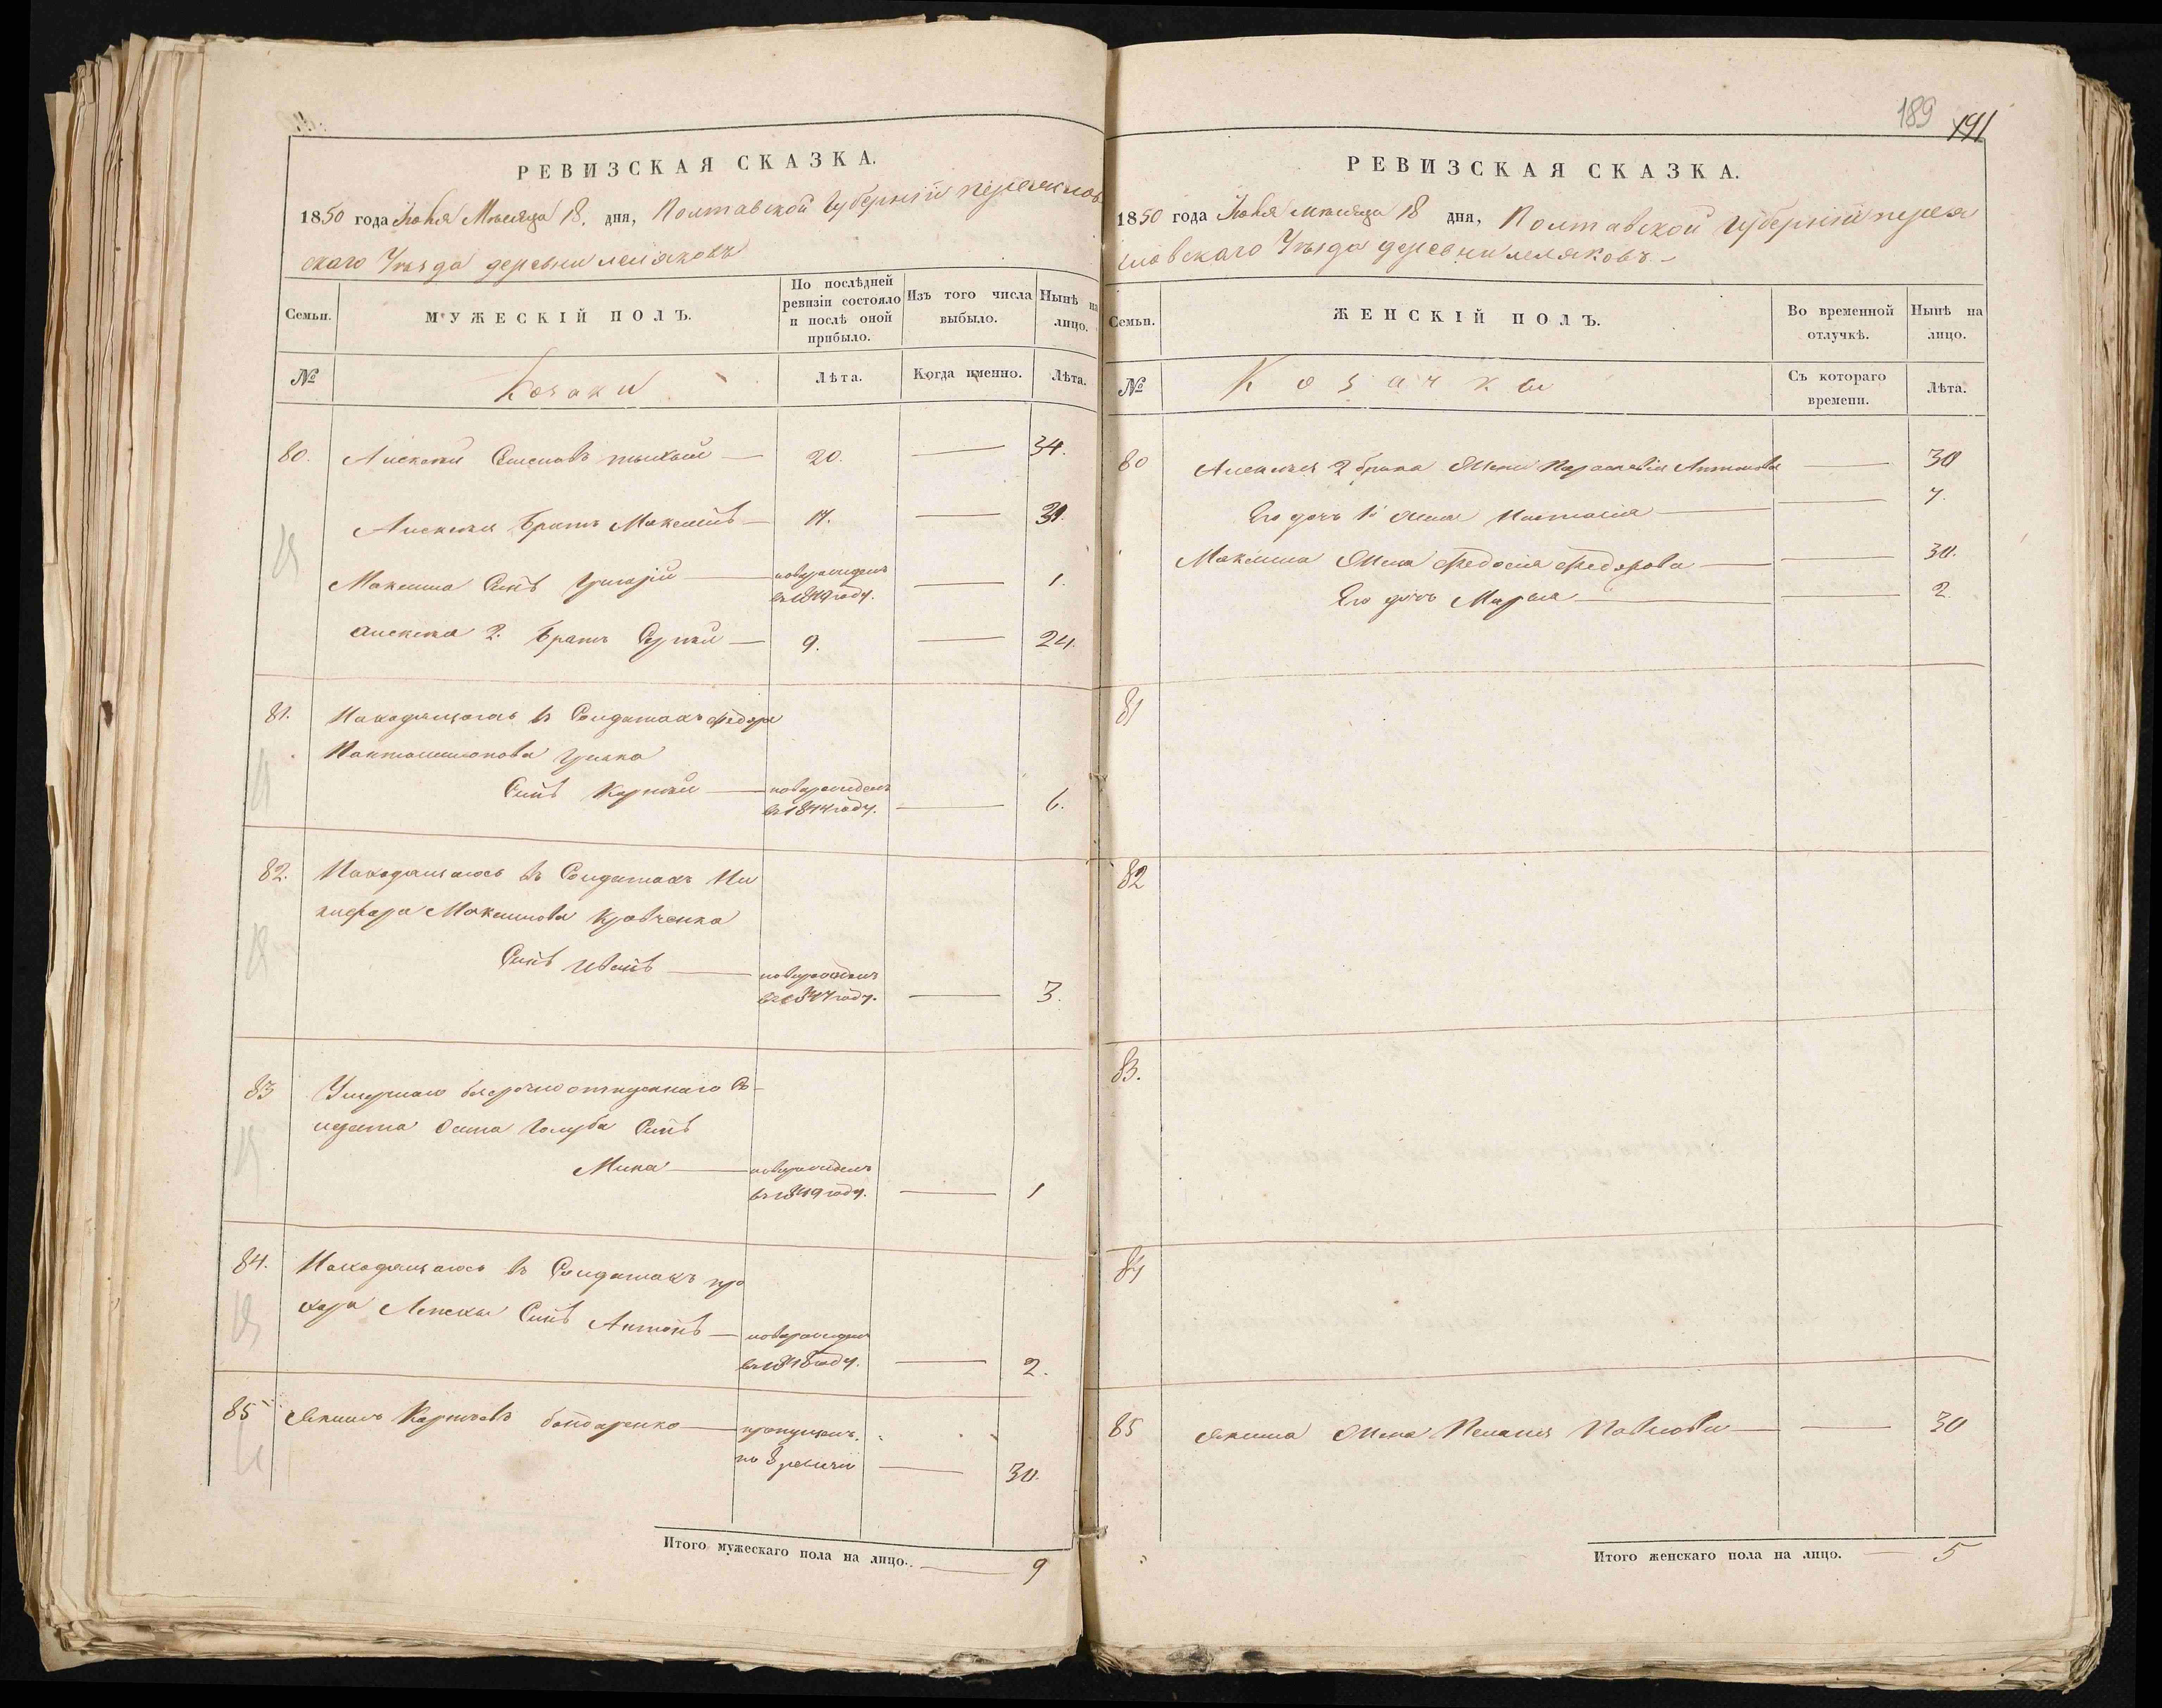 РЕВИЗСКАЯ СКАЗКА.
1850 года Іюня Мѣсяца 18. дня, Полтавской Губерніи Переяслов
скаго Уѣзда деревни Леляковъ
Семьи.
МУЖЕСКІЙ ПОЛЪ.
По послѣдней ревизіи состояло и послѣ оной прибыло.
Изъ того числа выбыло.
Нынѣ на лицо.
№
Козаки
Лѣта.
Когда именно.
Лѣта.
80. Алексей Семеновъ 20. 34.
Алексея Братъ Максимъ 17. 31.
Максима Сынъ Григорій новорожденъ 1.
въ 1849 году.
Алексея 2. Братъ Сергий 9. 24.
81. Находящагося въ Солдатахъ Федора
Пантелимонова
Сынъ Карпий новорожденъ
въ 1844 году. 6.
82. Находящагося въ Солдатахъ Ни
кифора Максимова Кравченка
Сынъ Иванъ новорожденъ
въ 1847 году. 3.
83 Умершаго безсрочно отпускнаго Со
лдата Осипа Голуба Сынъ
Мина новорожденъ
въ 1849 году. 1
84. Находящагося въ Солдатахъ про
хора Сынъ Антонъ новорожденъ
въ 1848 году. 2.
85 Якимъ Карповъ Бондаренко пропущенъ
по 8 ревизіи 30.
Итого мужескаго пола на лицо. 9
189 191
РЕВИЗСКАЯ СКАЗКА.
1850 года Іюня мѣсяца 18 дня, Полтавской Губерніи перея
словскаго Уѣзда деревни леляковъ
Семьи.
ЖЕНСКІЙ ПОЛЪ.
Во временной отлучкѣ.
Нынѣ на лицо.
№
Козачки
Съ котораго времени.
Лѣта.
80 Алексея 2 брака Жена Параскевія Антонова 30
Его дочь 1й жены Настасія 7.
Максима Жена Федосія Федорова 30.
Его дочь Марѳа 2.
81
82
83.
84
85 Якима Жена Пелагея Павлова 30
Итого женскаго пола на лицо. 5